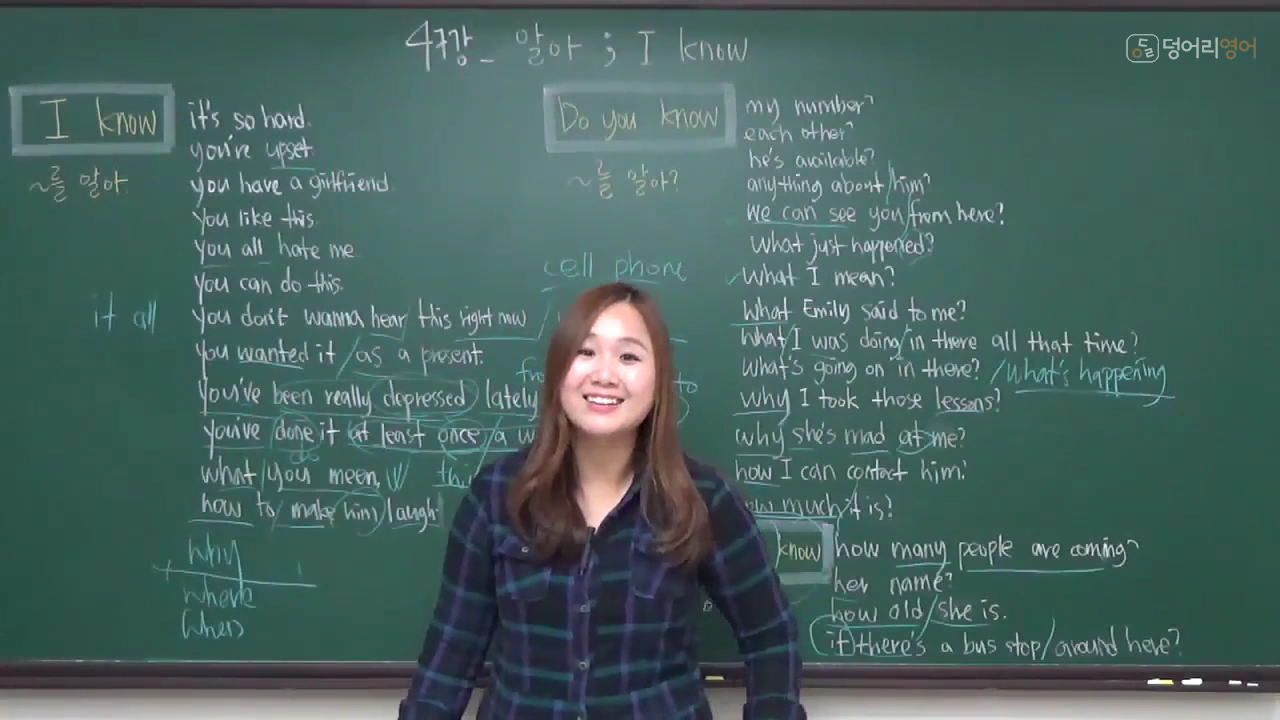 4강_ 알아 ; I know
덩어리영어
I know
~를 알아.
it's so hard.
you're upset.
you have a girlfriend.
you like this.
you all hate me.
you can do this.
it all
you don't wanna hear this right now
you wanted it / as a present.
you've been really depressed lately
you've done it at least once / a
do
what you mean.
how to make him laugh
why
where
when
cell phone
to
Do you know
~를 알아?
my number?
each other?
he's available?
anything about him?
we can see you from here?
what just happened?
what I mean?
what Emily said to me?
what I was doing in there all that time?
what's going on in there? / what's happening
why I took those lessons?
why she's mad at me?
how I can contact him?
much it is?
know
how many people are coming?
her name?
how old / she is.
if there's a bus stop / around here?